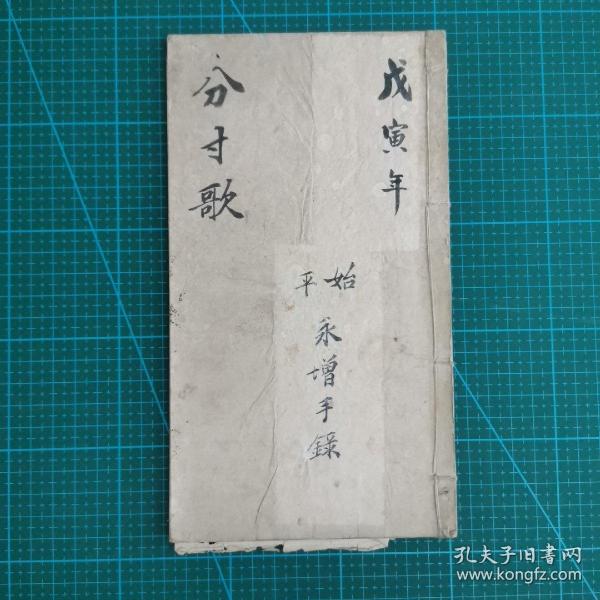 戊寅年
始平
永增手錄
分寸歌
孔夫子旧書网
www.kongfz.com